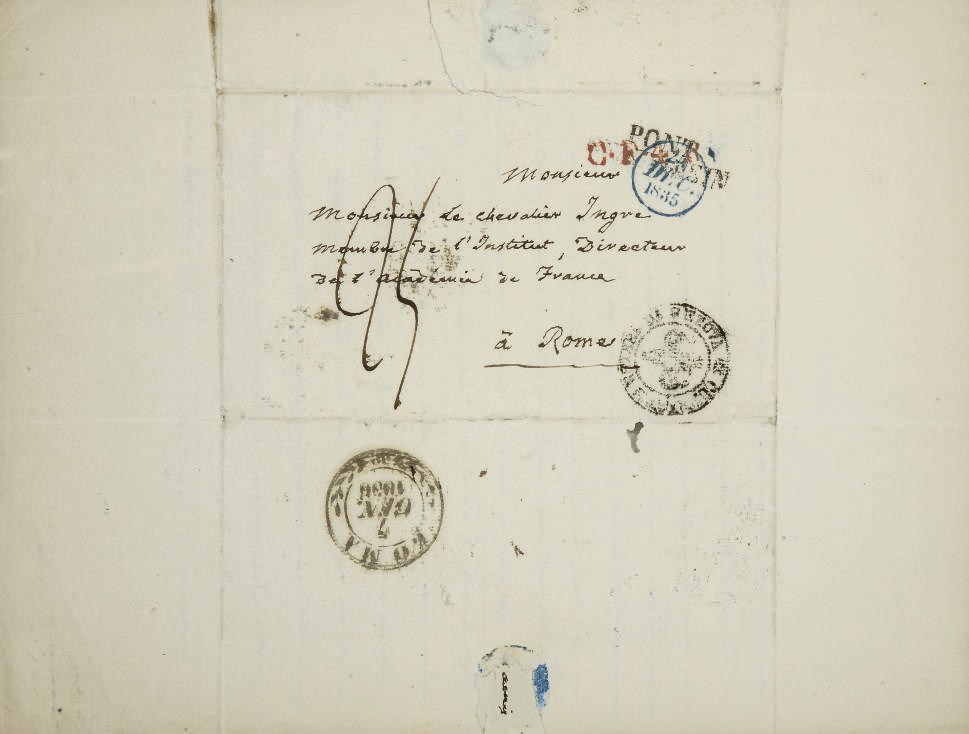 C.F.
PONT
DÉC.
1835
Monsieur
Monsieur Le chevalier Ingre
membre de l'Institut, Directeur
de l'académie de France
à Rome
ROMA
7
GEN
1836